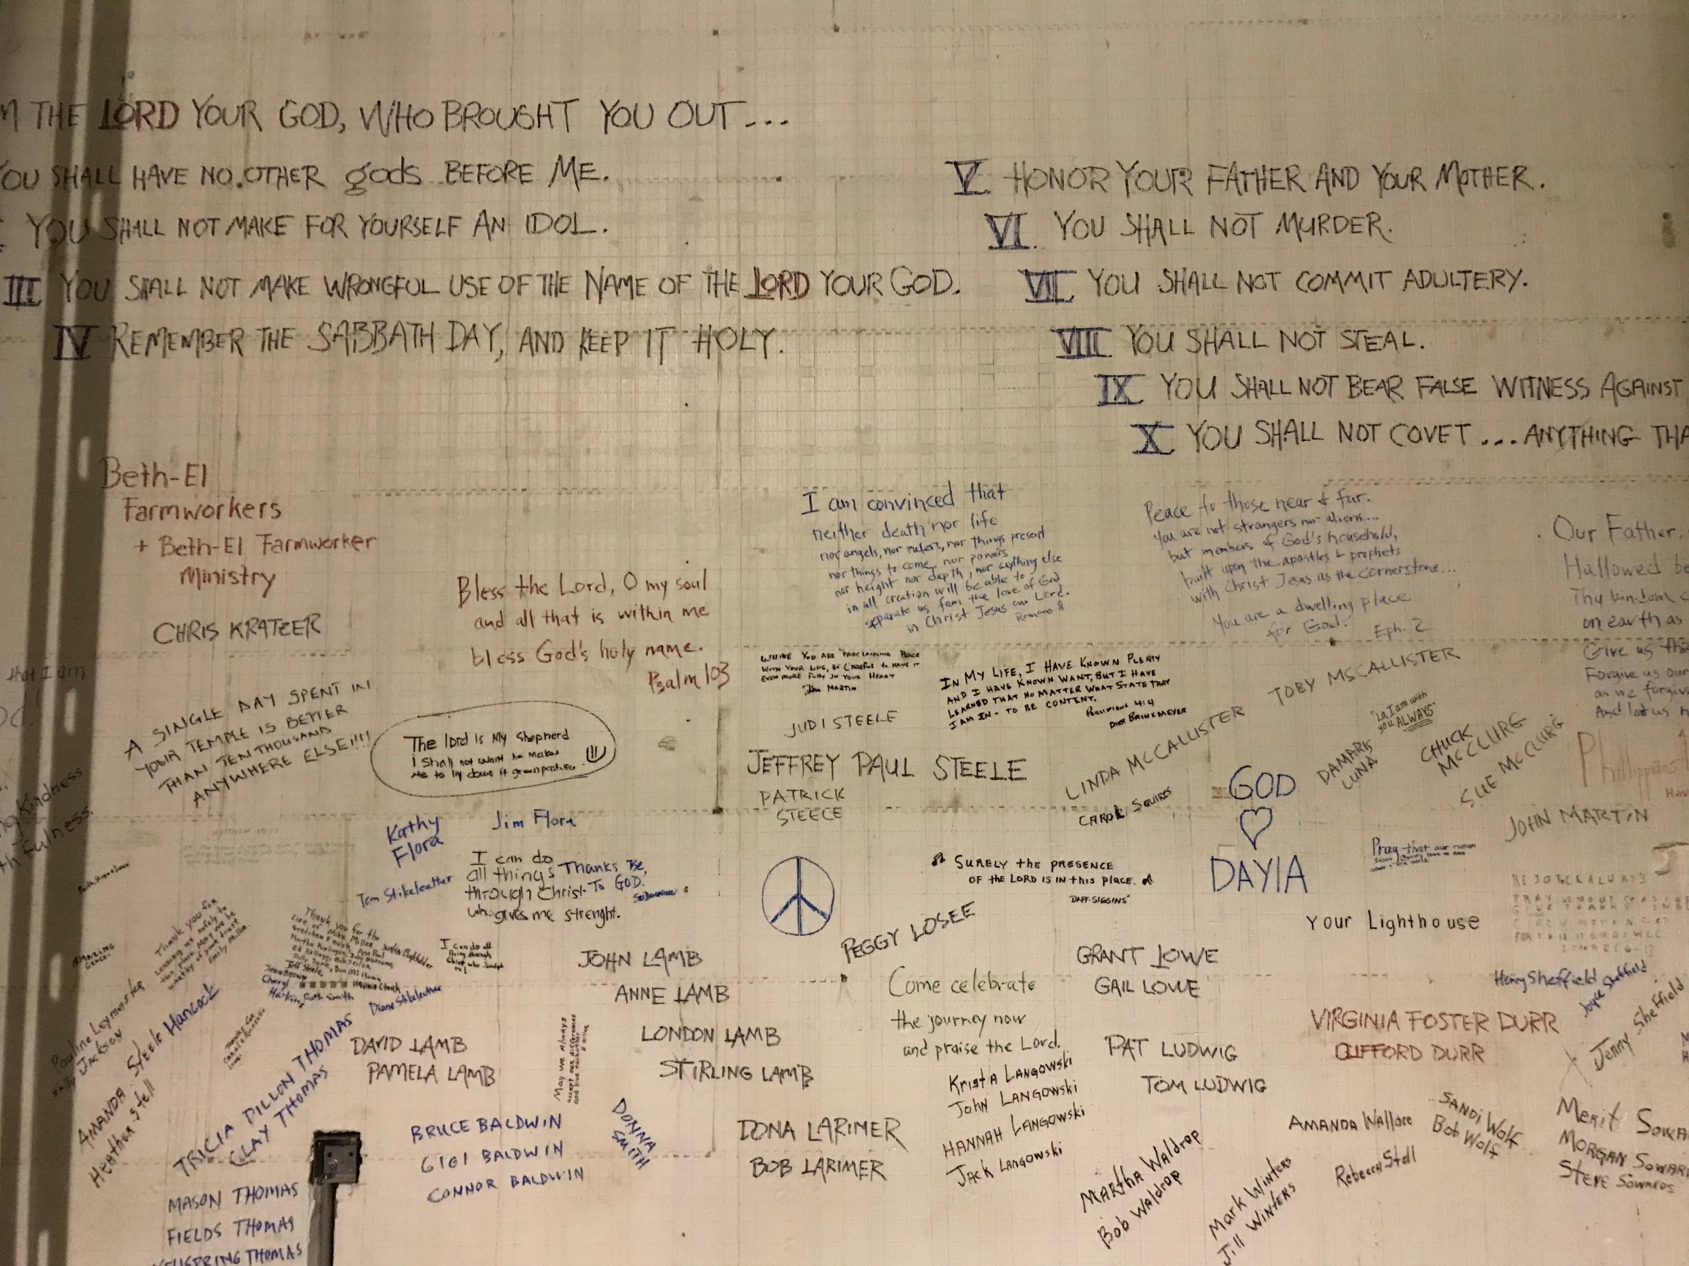 THE LORD YOUR GOD, WHO BROUGHT YOU OUT...
YOU SHALL HAVE NO OTHER gods BEFORE ME.
YOU SHALL NOT MAKE FOR YOURSELF AN IDOL.
III YOU SHALL NOT MAKE WRONGFUL USE OF THE NAME OF THE LORD YOUR GOD.
IV REMEMBER THE SABBATH DAY, AND KEEP IT HOLY.
V. HONOR YOUR FATHER AND YOUR MOTHER.
VI. YOU SHALL NOT MURDER.
VII YOU SHALL NOT COMMIT ADULTERY.
VIII YOU SHALL NOT STEAL.
IX YOU SHALL NOT BEAR FALSE WITNESS AGAINST
X YOU SHALL NOT COVET ... ANYTHING THA
Beth-El
Farmworkers
+ Beth-El Farmworker
Ministry
CHRIS KRATZER
Bless the Lord, O my soul
and all that is within me
bless God's holy name.
Psalm 103
I am convinced that
neither death nor life
nor angels, nor rulers, nor things present
nor things to come, nor powers
nor height nor depth, nor anything else
in all creation will be able to
separate us from the love of God
in Christ Jesus our Lord.
Romans 8
Peace to those near & far.
You are not strangers nor aliens...
but members of God's household,
built upon the apostles & prophets
with Christ Jesus as the cornerstone...
You are a dwelling place
for God. Eph. 2
Our Father,
Hallowed be
Thy kingdom
on earth as
Give us this
Forgive us our
as we forgive
And let us n
that I am
A SINGLE DAY SPENT IN
YOUR TEMPLE IS BETTER
THAN TEN THOUSAND
ANYWHERE ELSE!!!!
The lord is My Shepherd
I shall not want he makes
me to lie down in green pastures
WHILE YOU ARE PROCLAIMING PEACE
WITH YOUR LIPS, BE CAREFUL TO HAVE IT
EVEN MORE FULLY IN YOUR HEART
JOHN MARTIN
IN MY LIFE, I HAVE KNOWN PLENTY
AND I HAVE KNOWN WANT, BUT I HAVE
LEARNED THAT NO MATTER WHAT STATE THAT
I AM IN - TO BE CONTENT.
PHILIPPIANS 4:14
DICK BRINKMEYER
JUDI STEELE
JEFFREY PAUL STEELE
PATRICK
STEECE
LINDA MCCALLISTER
TOBY MCCALLISTER
CAROL SQUIRES
"Lo, I am with
you ALWAYS"
DAMARIS
LUNA
CHUCK
MCCLURG
SUE MCCLURG
Phillippians
JOHN MARTIN
GOD
♡
DAYIA
Pray that our nation
Kathy
Flora
Jim Flora
Tom Stikeleather
I can do
all things
through Christ
who gives me strenght.
Thanks Be,
To GOD.
SURELY the PRESENCE
OF the LORD IS IN this PLACE.
DAFF-SIGGINS
PEGGY LOSEE
Your Lighthouse
REJOICE ALWAYS
Thank you for the
GRANT LOWE
GAIL LOWE
Henry Sheffield
Joyce Sheffield
Jenny Sheffield
JOHN LAMB
ANNE LAMB
LONDON LAMB
STIRLING LAMB
DAVID LAMB
PAMELA LAMB
Ruth Smith
Diane Stikeleather
Come celebrate
the journey now
and praise the Lord.
Krista Langowski
John LANGOWSKI
HANNAH LANGOWSKI
Jack Langowski
PAT LUDWIG
TOM LUDWIG
VIRGINIA FOSTER DURR
CLIFFORD DURR
Jackson
AMANDA Steele Hancock
Heather Stell
TRICIA DILLON THOMAS
CLAY THOMAS
MASON THOMAS
FIELDS THOMAS
THOMAS
BRUCE BALDWIN
GIGI BALDWIN
CONNOR BALDWIN
DONNA
SMITH
DONA LARIMER
BOB LARIMER
Martha Waldrop
Bob Waldrop
Mark Winters
Jill WINTERS
AMANDA Wallace
Rebecca Stell
SANDI Wolf
Bob Wolf
Merit Sowa
MORGAN SOWAR
STEVE SOWARDS